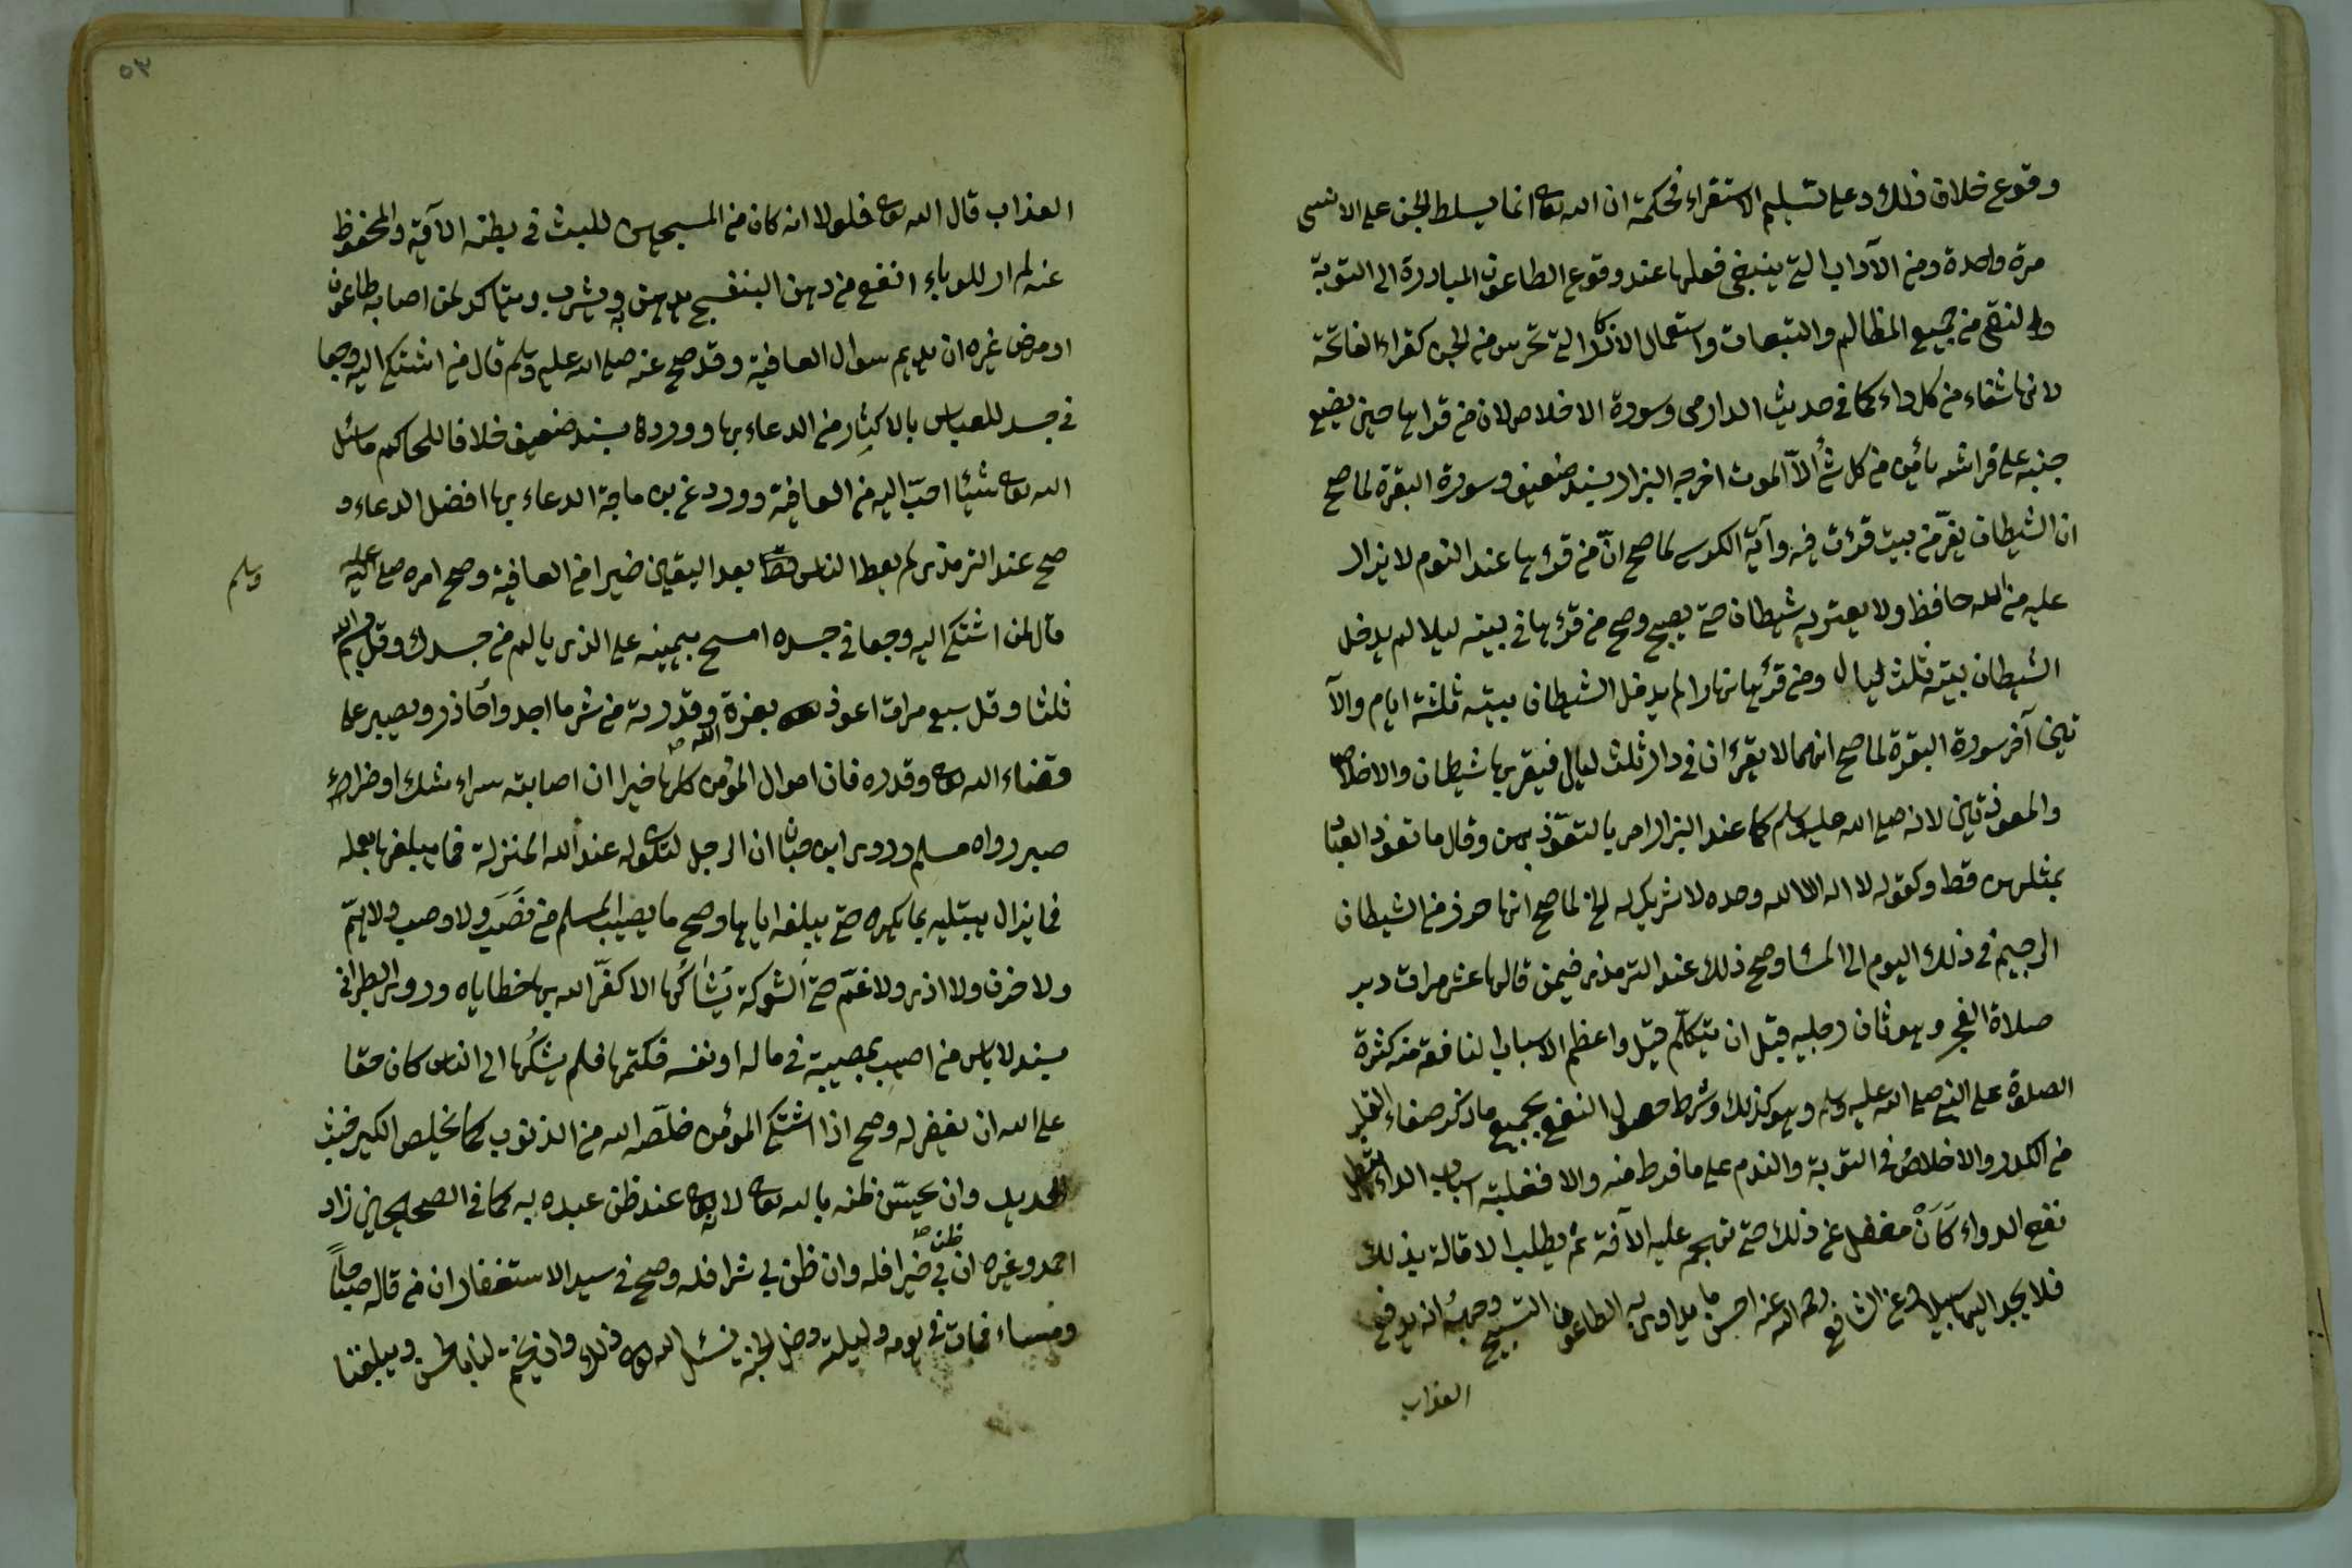 وقوع خلاف ذلك وعلى تسليم الاستقراء فحكمة ان الله تعالى انما يسلط الجن على الانسى
مرة واحدة ومن الآداب التي ينبغي فعلها عند وقوع الطاعون المبادرة الى التوبة
من جميع المظالم والتبعات واستعمال الاذكار التي تحرس من الجن كقراءة الفاتحة
لانها شفاء من كل داء كما في حديث الدارمى وسورة الاخلاص لان من قرأها حين يضع
جنبه على فراشه يأمن من كل شئ الا الموت اخرجه البزار بسند ضعيف وسورة البقرة لما صح
ان الشيطان يفر من بيت قرئت فيه وآية الكرسى لما صح ان من قرأها عند النوم لا يزال
عليه من الله حافظ ولا يعتريه شيطان حتى يصبح وصح من قرأها في بيته ليلا لم يدخل
الشيطان بيته ثلث ليال ومن قرأها نهارا لم يدخل الشيطان بيته ثلثة ايام والآ
يتين آخر سورة البقرة لما صح انهما لا يقرءان في دار ثلث ليال فيقربها شيطان والاخلاص
والمعوذتين لانه صلى الله عليه وسلم كما عند البزار امر بالتعوذ بهن وقال ما تعوذ العباد
بمثلهن قط وكقوله لا اله الا الله وحده لا شريك له الخ لما صح انها حرز من الشيطان
الرجيم في ذلك اليوم الى المسا وصح ذلك عند الترمذى فيمن قالها عشر مرات دبر
صلاة الفجر وهو ثان رجليه قبل ان يتكلم قيل واعظم الاسباب النافعة منه كثرة
الصلوة على النبي صلى الله عليه وسلم وهو كذلك وشرط حصول النفع بجميع ما ذكر صفاء القلب
من الكدر والاخلاص في التوبة والندم على ما فرط منه والا فغلبة اسباب الداء تبطل
نفع الدواء كأن مغفل عن ذلك حتى تهجم عليه الآفة ثم يطلب الاقالة بذلك
فلا يجد اليها سبيلا وعن الشافعي رحمه الله عنه احسن ما يداوى به الطاعون التسبيح ووجهه انه يدفع
العذاب
العذاب قال الله تعالى فلولا انه كان من المسبحين للبث في بطنه الآية والمحفوظ
عنه لم ار للوباء انفع من دهن البنفسج يدهن به ويشرب ويتاكد لمن اصابه طاعون
او مرض غيره ان يديم سوال العافية وقد صح عنه صلى الله عليه وسلم قال من اشتكى اليه وجعا
في جسد للعباس بالاكثار من الدعاء بها وورده بسند ضعيف خلافا للحاكم ما سئل
الله تعالى شيئا احب اليه من العافية وورد عن ابن ماجة الدعاء بها افضل الدعاء و
صح عند الترمذى لم يعط الناس بعد اليقين خيرا من العافية وصح امره صلى الله عليه
وسلم
قال لمن اشتكى اليه وجعا في جسده امسح بيمينه على الذى يالم من جسدك وقل بسم الله
ثلثا وقل سبع مرات اعوذ بعزة الله وقدرته من شر ما اجد وأحاذر ويصبر على
قضاء الله تعالى وقدره فان احوال المؤمن كلها خيرا ان اصابته سراء شكر او ضراء
صبر رواه مسلم وروى ابن حبان ان الرجل لتكون له عند الله المنزلة فما يبلغها بعمله
فما يزال يبتليه بما يكره حتى يبلغه اياها وصح ما يصيب المسلم من نصب ولا وصب ولا هم
ولا حزن ولا اذى ولا غم حتى الشوكة يشاكها الا كفر الله بها خطاياه وروى الطبراني
بسند لا باس من اصيب بمصيبة في ماله او نفسه فكتمها فلم يشكها الى الناس كان حقا
على الله ان يغفر له وصح اذا اشتكى المؤمن خلصه الله من الذنوب كما يخلص الكير خبث
الحديد وان يحسن ظنه بالله تعالى لانه تعالى عند ظن عبده به كما في الصحيحين زاد
احمد وغيره ان ظن بي خيرا فله وان ظن بي شرا فله وصح في سيد الاستغفار ان من قاله صباحا
ومساء فمات في يومه وليلته دخل الجنة نسئل الله تعالى ذلك وان يختم لنا بالحسنى ويبلغنا
٥٣